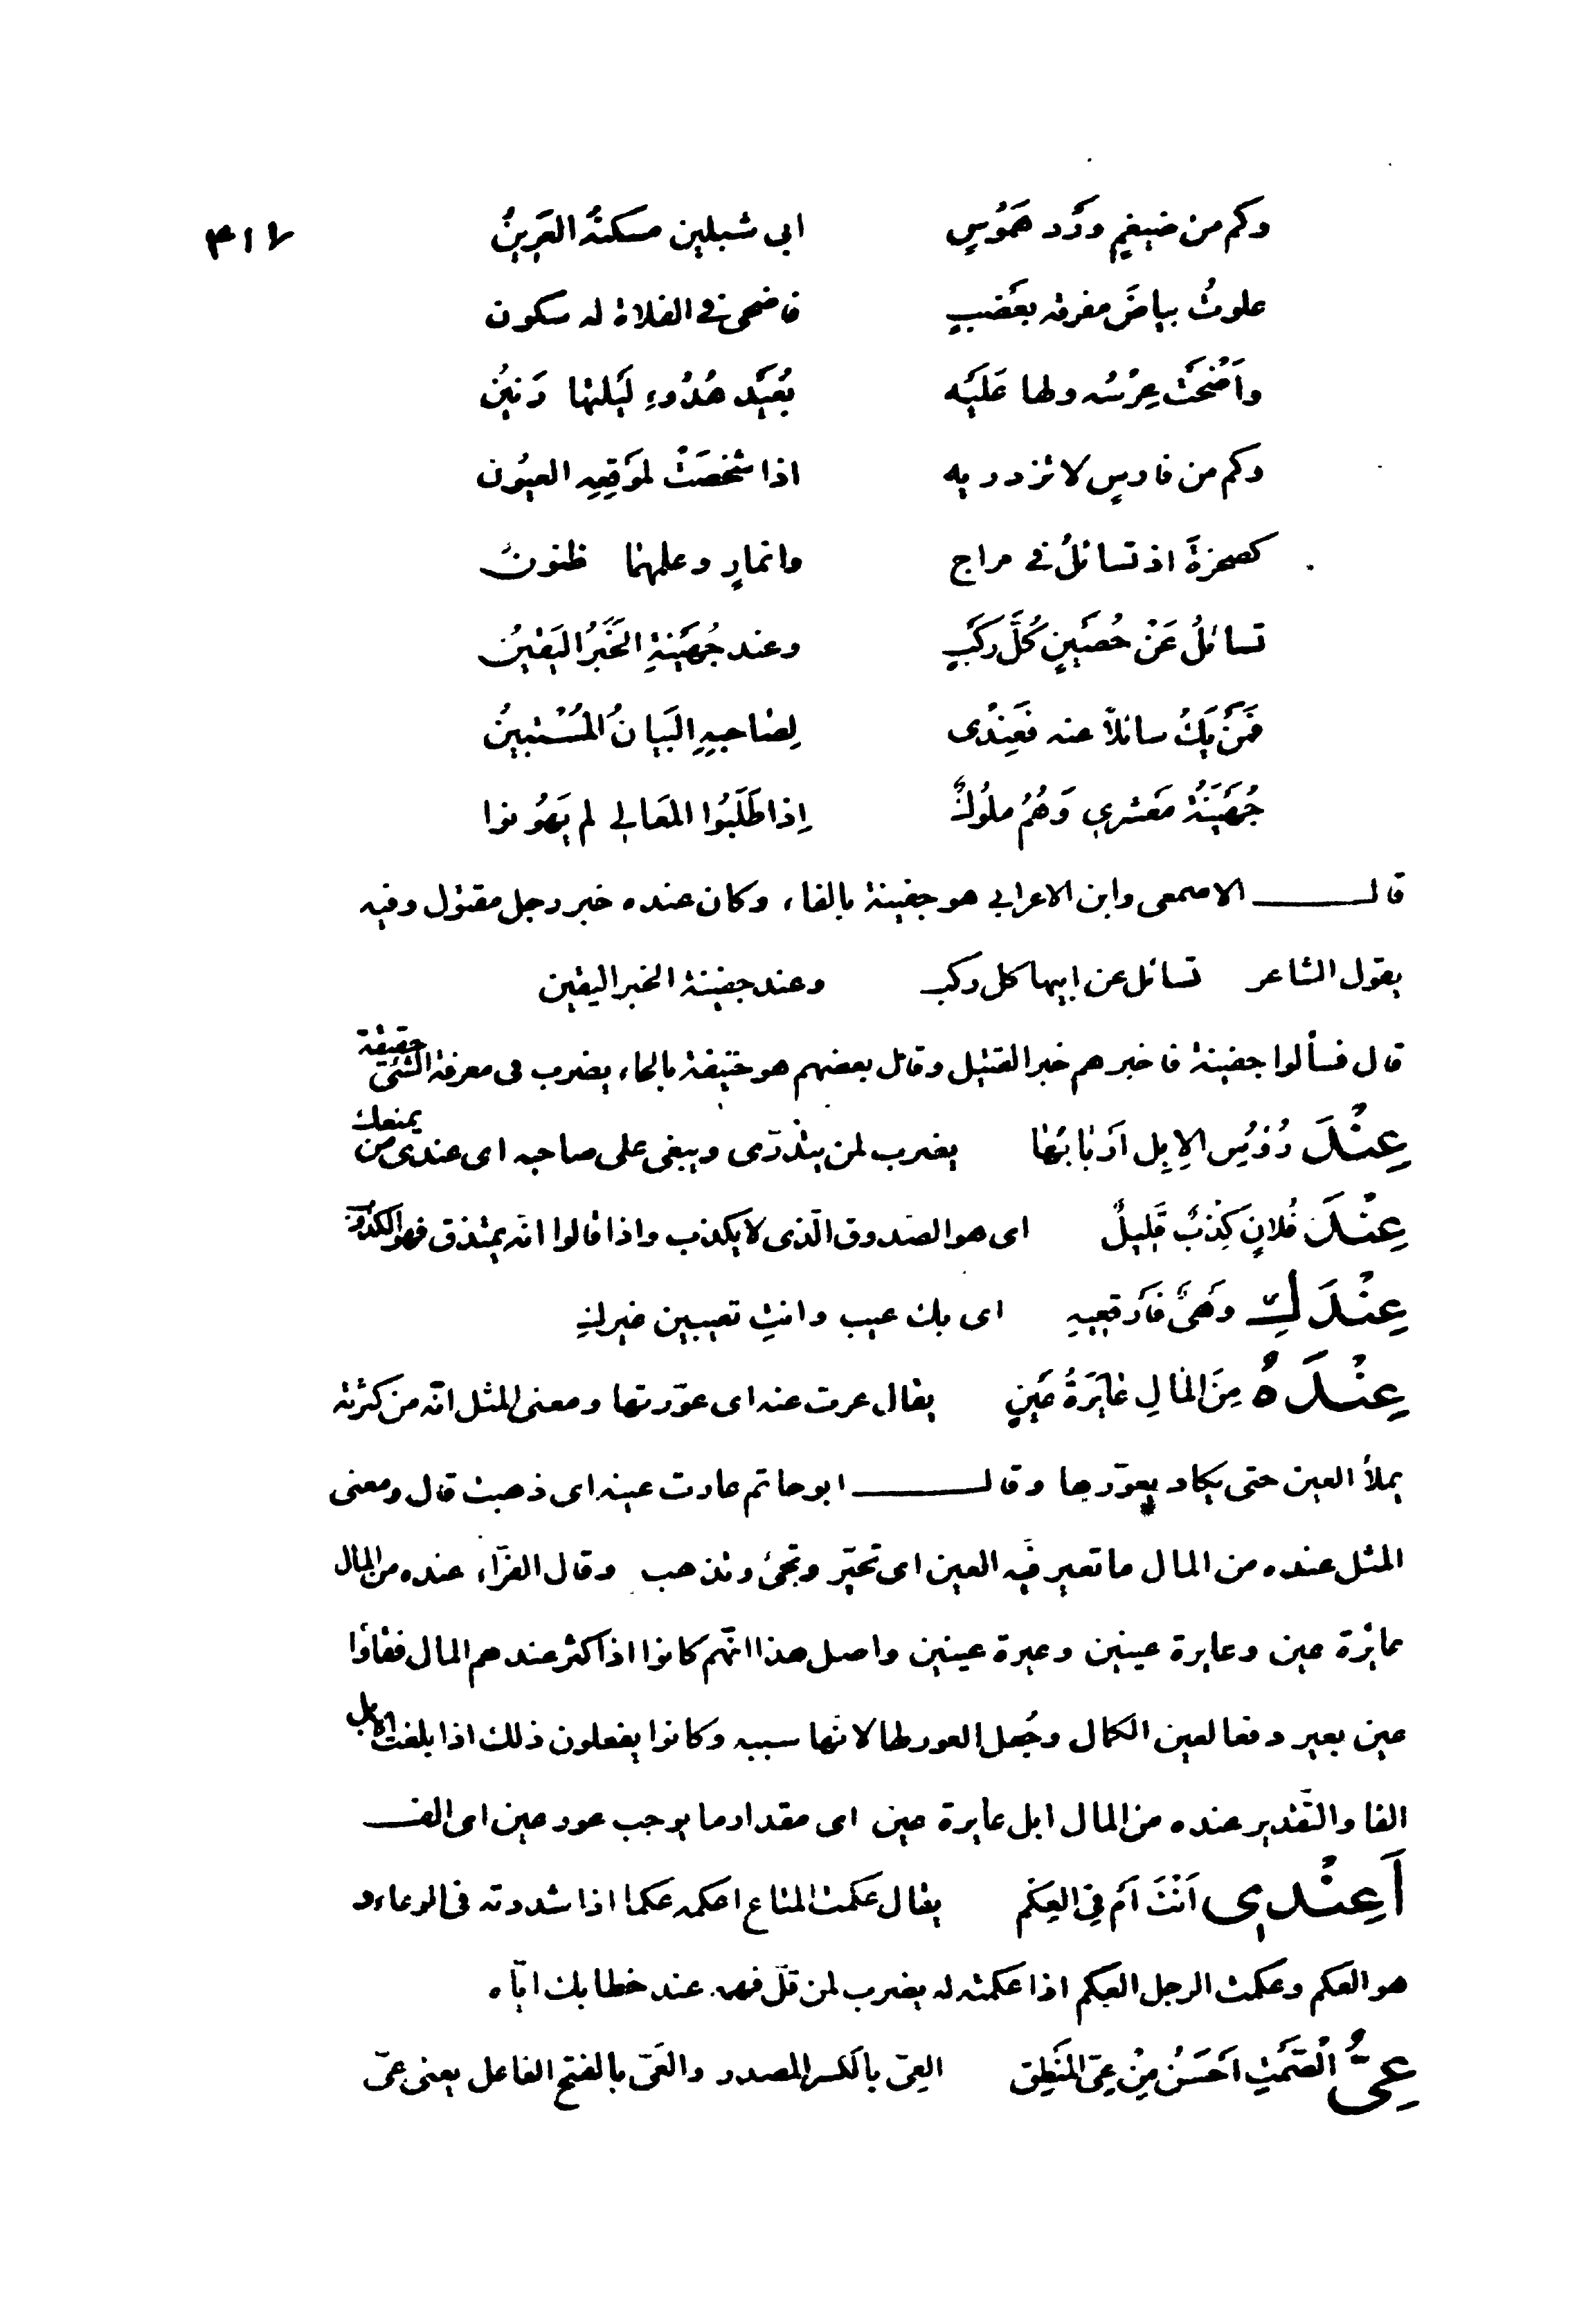 ۴۱۷
وكم من ضيغمٍ وَرْد هَمُوسٍ ابى شبلين مسكنهُ العَرِينُ
علوتُ بياضَ مفرقه بعَضبٍ فاضحى فى الفلاة له سكون
واَضْحَتْ عِرْسُه ولها عَلَيْه بُعَيْد هُدُوءِ لَيْلتها رَنيْنُ
وكم من فارسٍ لا تزدريه اذا شخصَتْ لموقِعِه العيُون
كصخرةَ اذ تسائلُ فى مراح وانمارٍ وعلمهما ظنونُ
تسائلُ عَنْ حُصَيْنٍ كُلَّ رَكْبٍ وعند جُهَيْنةِ الخَبَرُ اليَقينُ
فَمَنْ يَكُ سائلاً عنه فعِنْدى لِصاحبِهِ البَيانُ المُسْتبينُ
جُهَيْنَةُ مَعْشرى وَهُمُ ملُوكٌ اِذا طَلَبُوا المَعَالى لم يَهُونوا
قال الاصمعى وابن الاعرابى هو جفينة بالفاء وكان عنده خبر رجل مقتول وفيه
يقول الشاعر تسائل عن ابيها كل ركب وعند جفينة الخبر اليقين
قال فسألوا جفينة فاخبرهم خبر القتيل وقال بعضهم هو حفينة بالحاء يضرب فى معرفة الشئ حقيقة
عِنْدَ رُؤُسِ الاِبِل اَرْبَابُها يضرب لمن يتذرّى ويبغى على صاحبه اى عندى من يمنعك
عِنْدَ فُلانٍ كِذْبٌ قَلِيلٌ اى هو الصَدوق الّذى لا يكذب واذا قالوا انّه يمتذق فهو الكذوب
عِنْدَكِ وَهىٌ فَارْقعِيهِ اى بك عيب وانتِ تعيبين غيركِ
عِنْدَهُ مِنَ المَالِ عَايَرَةُ عَيْنٍ يقال عرت عنه اى عوّرتها ومعنى المثل انّه من كثرته
يملأ العين حتى يكاد يعوّرها وقال ابو حاتم عارت عينه اى ذهبت قال ومعنى
المثل عنده من المال ما تعير فيه العين اى تحيّر وتجئ وتذهب وقال الفرّاء عنده من المال
عايرة عين وعايرة عينين وعيرة عينين واصل هذا انّهم كانوا اذا كثر عندهم المال فقاؤا
عين بعير دفعا لعين الكمال وجُعل العور لها لانّها سببه وكانوا يفعلون ذلك اذا بلغت الابل
الفا والتّقدير عنده من المال ابل عايرة عين اى مقدار ما يوجب عور عين اى الف
اَعِنْدى اَنْتَ اَمْ فِى العِكْمِ يقال عكمت المتاع اعكمه عكما اذا شددته فى الوعاء و
هو العكم وعكمت الرجل العكم اذا عكمته له يضرب لمن قلّ فهمه عند خطابك ايّاه
عِىُّ الصَّمْتِ اَحْسَنُ مِنْ عِىّ المَنْطِق العِىّ بالكسر المصدر والعَىّ بالفتح الفاعل يعنى عىّ